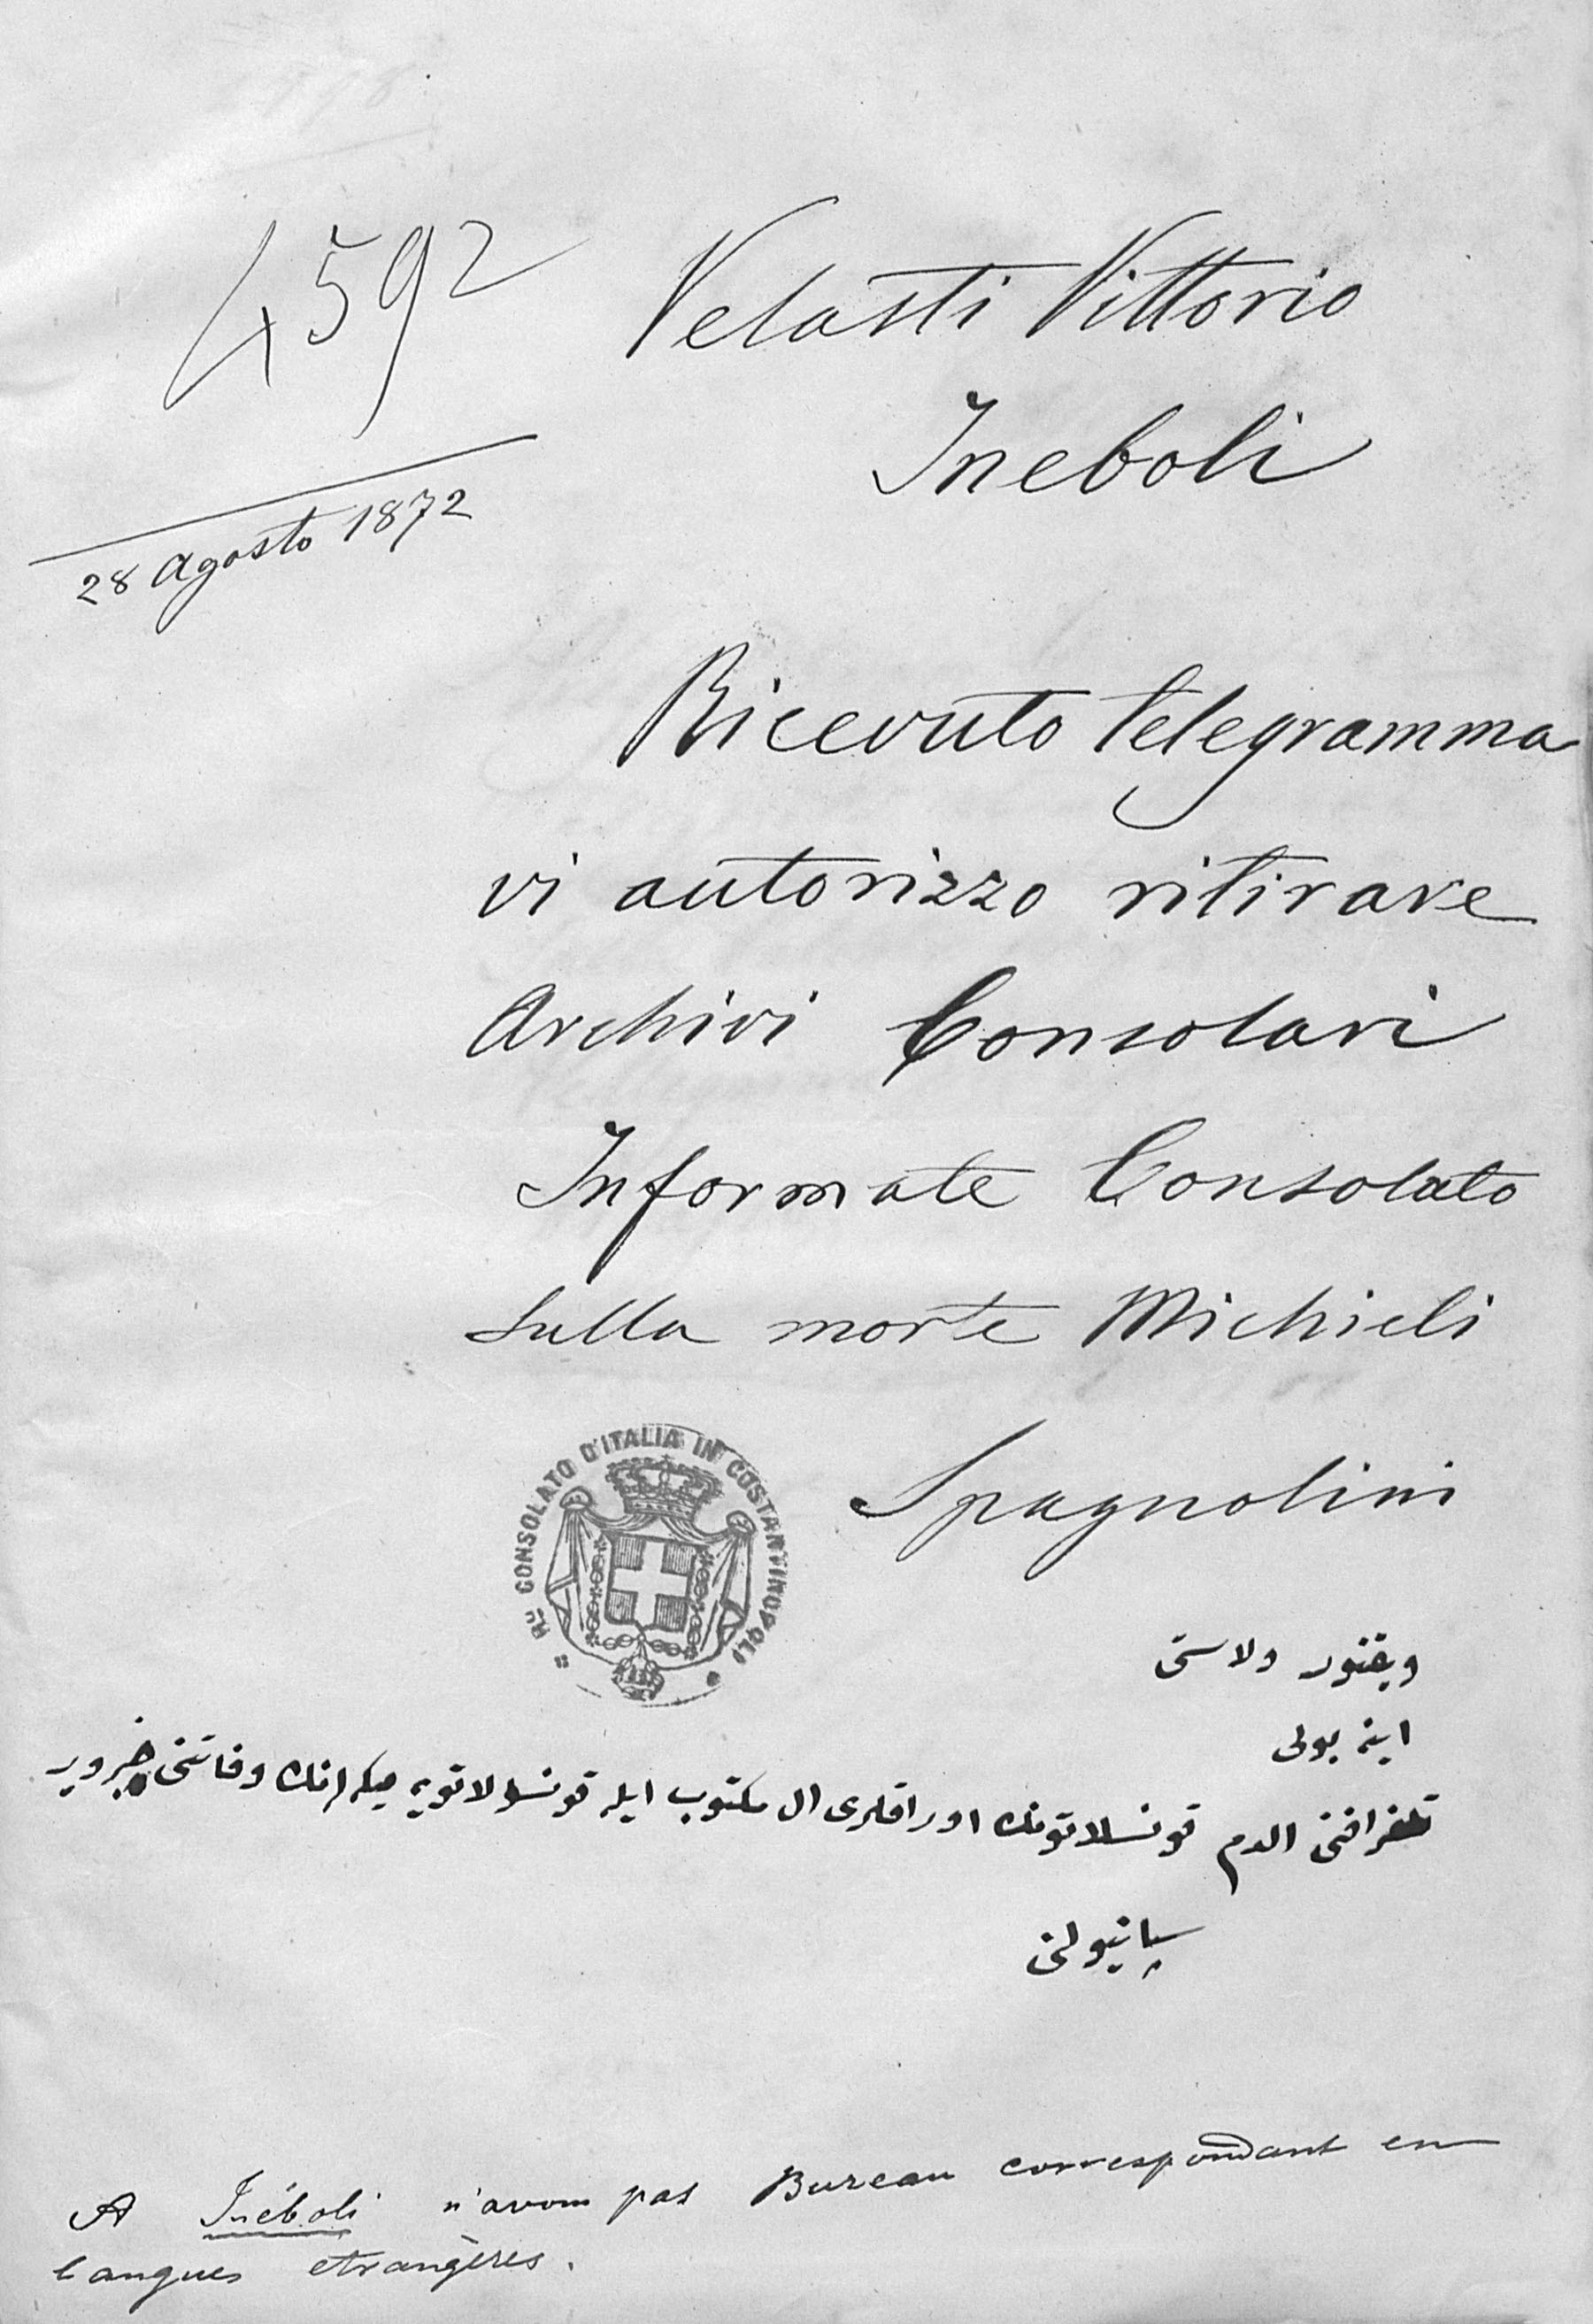 4592
28 Agosto 1872
Velasti Vittorio
Ineboli
Ricevuto telegramma
vi autorizzo ritirare
Archivi Consolari
Informate Consolato
Sulla morte Michieli
Spagnolini
Ro CONSOLATO D'ITALIA IN COSTANTINOPOLI
ويقتور ولاستی
اینه بولی
تلغرافنی الدم قونسلاتونك اوراقلری ال مكتوب ایله قونسولاتویه وفاتنی خبر ویر
سپانیولنی
A Inéboli n'avons pas Bureau correspondant en
langues etrangères.